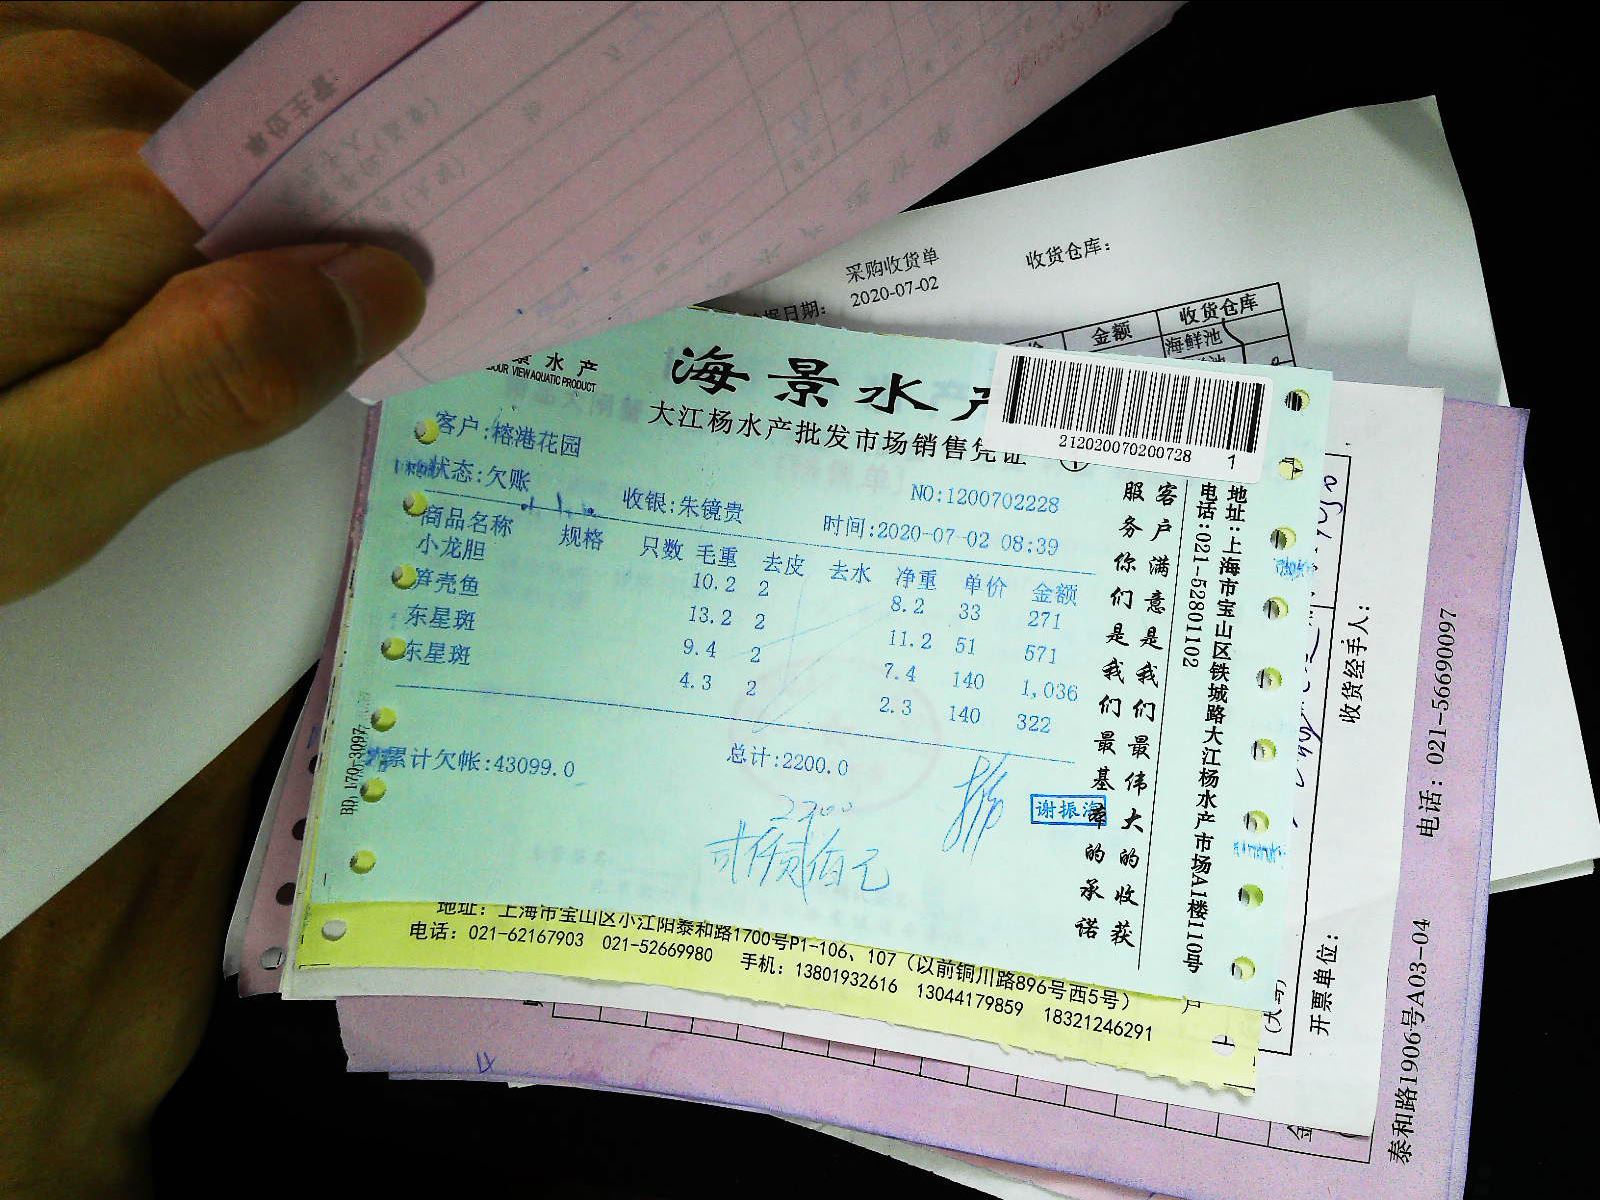 采购收货单
收货仓库:
2020-07-02
金额
收货仓库
海鲜池
水产
VIEW AQUATIC PRODUCT
海景水
大江杨水产批发市场销售凭证
212020070200728
1
客户:榕港花园
状态:欠账
收银:朱镜贵
NO:1200702228
时间:2020-07-02 08:39
商品名称 规格 只数 毛重 去皮 去水 净重 单价 金额
小龙胆 10.2 2 8.2 33 271
笋壳鱼 13.2 2 11.2 51 571
东星斑 9.4 2 7.4 140 1,036
东星斑 4.3 2 2.3 140 322
累计欠帐:43099.0
总计:2200.0
2200
贰仟贰佰元
谢振海
客户满意是我们最伟大的收获
服务你们是我们最基本的承诺
地址:上海市宝山区铁城路大江杨水产市场A1楼1110号
电话:021-52801102
地址: 上海市宝山区小江阳泰和路1700号P1-106、107(以前铜川路896号西5号)
电话: 021-62167903 021-52669980 手机: 13801932616 13044179859 18321246291
收货经手人:
开票单位:
电话: 021-56690097
泰和路1906号A03-04